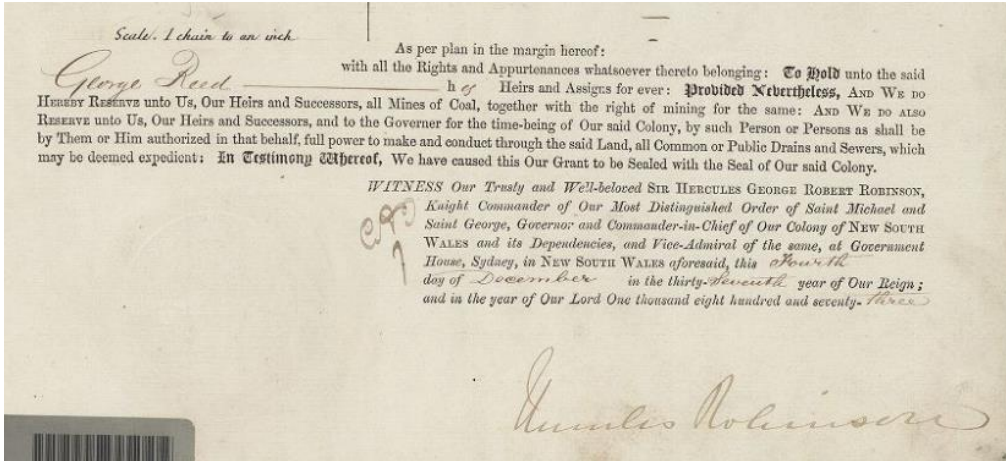 Scale. 1 chain to an inch
As per plan in the margin hereof:
with all the Rights and Appurtenances whatsoever thereto belonging: To Hold unto the said
George Reed h is Heirs and Assigns for ever: Provided Nevertheless, AND WE DO
HEREBY RESERVE unto Us, Our Heirs and Successors, all Mines of Coal, together with the right of mining for the same: AND WE DO ALSO
RESERVE unto Us, Our Heirs and Successors, and to the Governor for the time-being of Our said Colony, by such Person or Persons as shall be
by Them or Him authorized in that behalf, full power to make and conduct through the said Land, all Common or Public Drains and Sewers, which
may be deemed expedient: In Testimony Whereof, We have caused this Our Grant to be Sealed with the Seal of Our said Colony.
WITNESS Our Trusty and Well-beloved SIR HERCULES GEORGE ROBERT ROBINSON,
Knight Commander of Our Most Distinguished Order of Saint Michael and
Saint George, Governor and Commander-in-Chief of Our Colony of NEW SOUTH
WALES and its Dependencies, and Vice-Admiral of the same, at Government
House, Sydney, in NEW SOUTH WALES aforesaid, this Fourth
day of December in the thirty-Seventh year of Our Reign;
and in the year of Our Lord One thousand eight hundred and seventy-three
Hercules Robinson